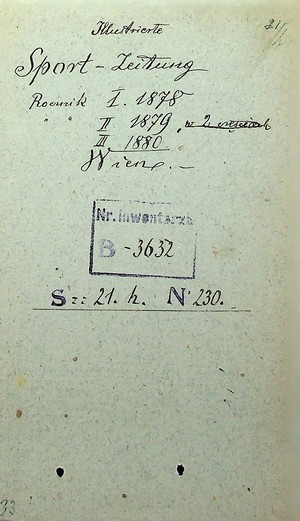 Illustrierte
Sport-Zeitung
Rocznik I. 1878
" " II 1879, w 2 częściach
III. 1880
Wien.-
Nr. inwentarza
B -3632
Sz: 21. h. N° 230.
33